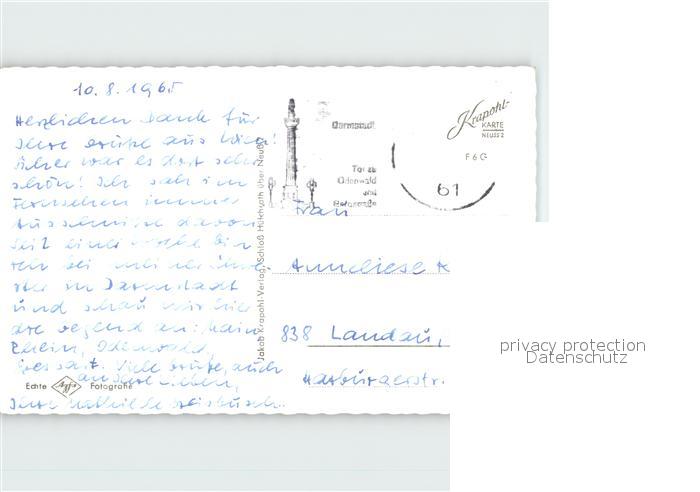 10.8.1965
Herzlichen Dank für
Ihre Grüße aus
Sicher war es dort sehr
schön! Ich sah im
Fernsehen immer
Ausschnitte davon
Seit einer Woche bin
ich bei meiner
in Darmstadt
und schau mir hier
die Gegend an: Main
Rhein, Odenwald,
Viele Grüße, auch
an Ihre Lieben,
Ihre Mathilde
Echte Agfa Fotografie
Jakob Krapohl-Verlag, Schloß Hülchrath über Neuß
Darmstadt
Tor zu
Odenwald
und
Bergstraße
61
Krapohl-
KARTE
NEUSS 2
F 6 G
Frau
Anneliese K
838 Landau,
Harburgerstr.
privacy protection
Datenschutz